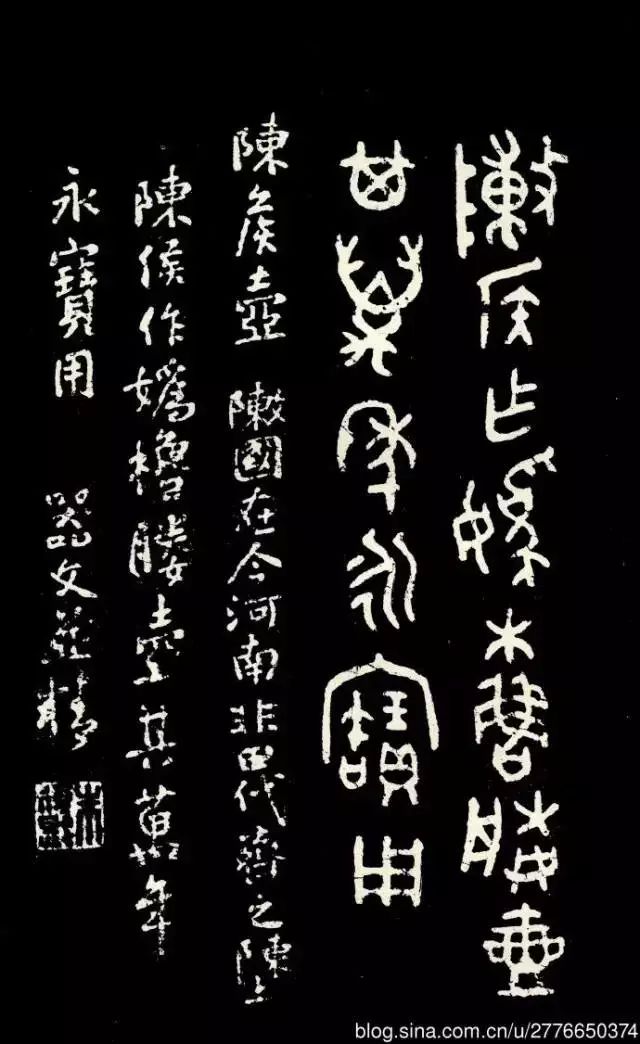 敶侯作媯櫓媵壺
其萬年永寶用
陳侯壺 敶國在今河南非田代齊之陳也
陳侯作媯櫓媵壺其萬年
永寶用 器文並精
blog.sina.com.cn/u/2776650374